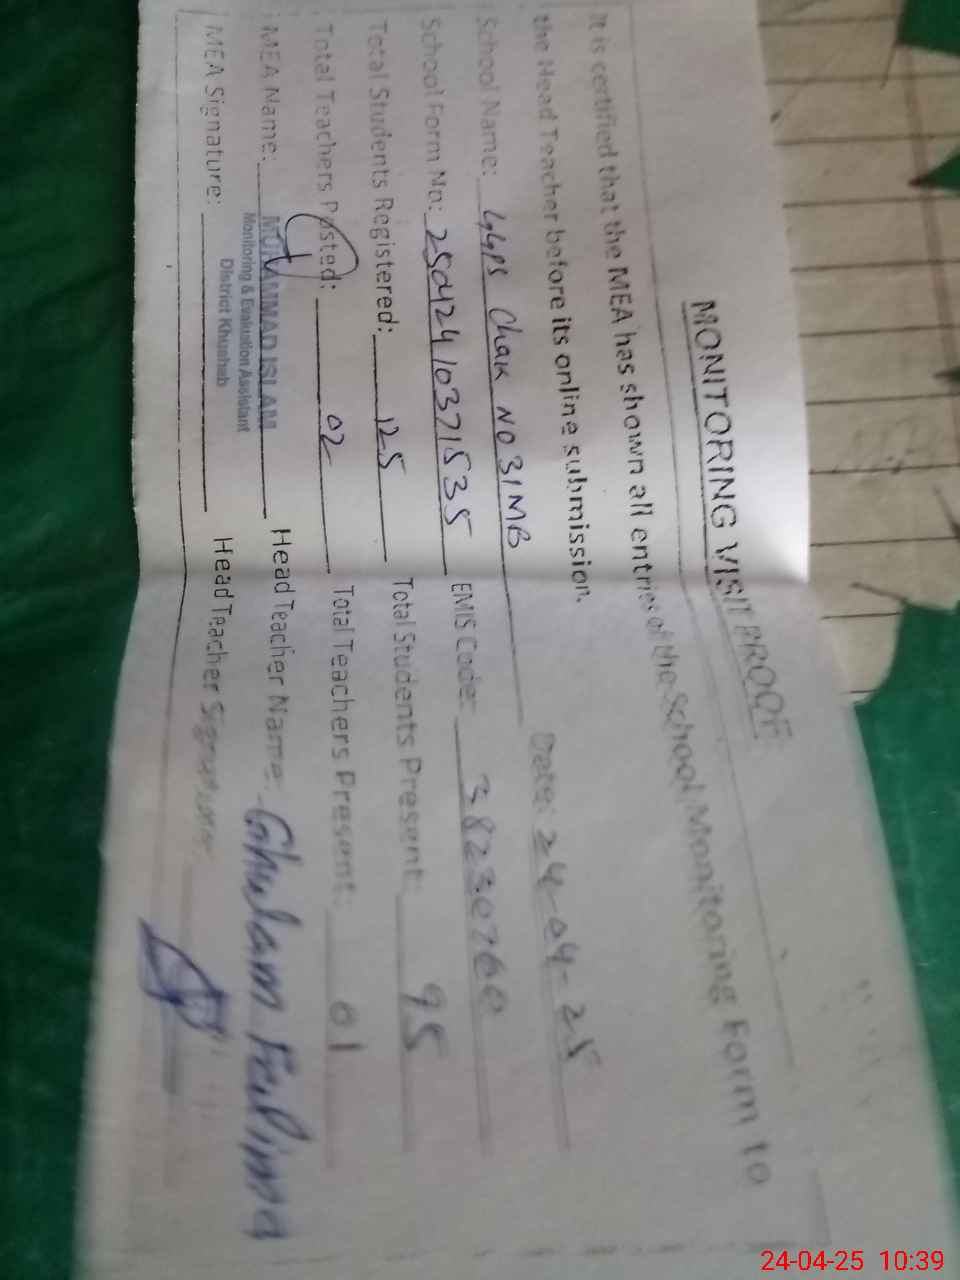 MONITORING VISIT PROOF
It is certified that the MEA has shown all entries of the School Monitoring Form to
the Head Teacher before its online submission.
Date: 24-04-25
School Name: GGPS Chak NO 31MB
School Form No: 25042410371535 EMIS Code: 38230760
Total Students Registered: 125 Total Students Present: 95
Total Teachers Posted: 02 Total Teachers Present: 01
MEA Name: MUHAMMAD ISLAM Head Teacher Name: Ghulam Fatima
Monitoring & Evaluation Assistant
District Khushab
MEA Signature: Head Teacher Signature:
24-04-25 10:39